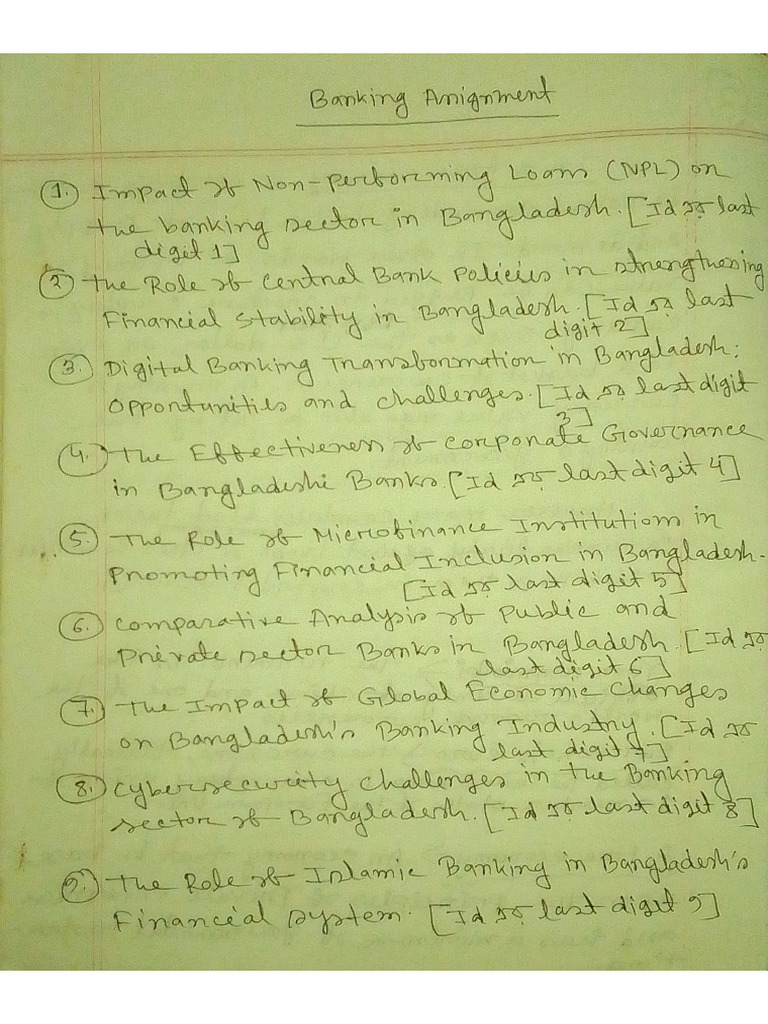 Banking Assignment
1. Impact of Non-performing Loans (NPL) on
the banking sector in Bangladesh. [Id এর last
digit 1]
2. The Role of Central Bank Policies in strengthening
Financial Stability in Bangladesh. [Id এর last
digit 2]
3. Digital Banking Transformation in Bangladesh:
Opportunities and challenges. [Id এর last digit
3]
4. The Effectiveness of corporate Governance
in Bangladeshi Banks. [Id এর last digit 4]
5. The Role of Microfinance Institutions in
Promoting Financial Inclusion in Bangladesh.
[Id এর last digit 5]
6. Comparative Analysis of Public and
Private sector Banks in Bangladesh. [Id এর
last digit 6]
7. The Impact of Global Economic Changes
on Bangladesh's Banking Industry. [Id এর
last digit 7]
8. Cybersecurity challenges in the Banking
sector of Bangladesh. [Id এর last digit 8]
9. The Role of Islamic Banking in Bangladesh's
Financial system. [Id এর last digit 9]